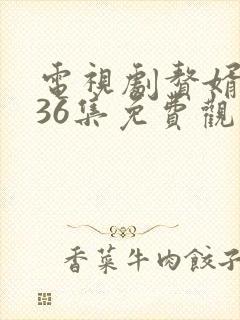 電視劇贅婿
36集免費觀
香菜牛肉餃子